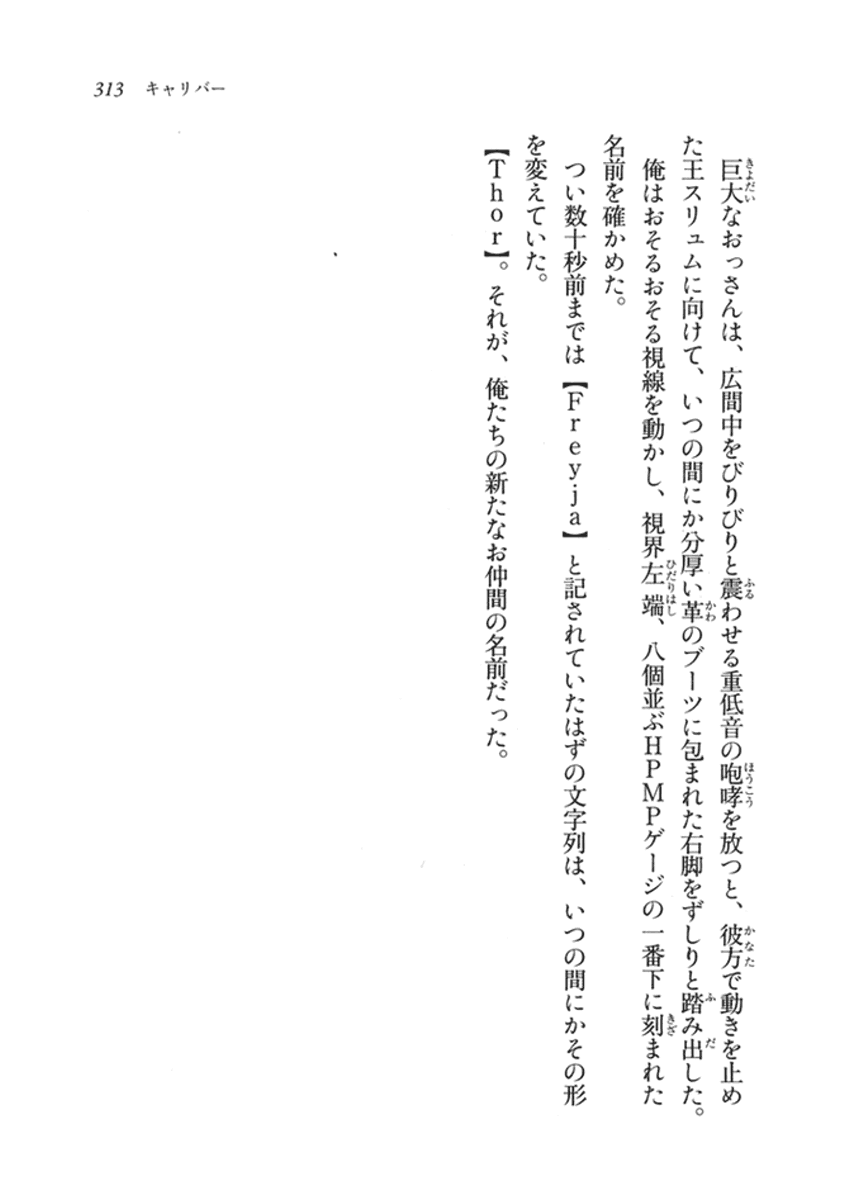 313 キャリバー
巨大なおっさんは、広間中をびりびりと震わせる重低音の咆哮を放つと、彼方で動きを止め
た王スリュムに向けて、いつの間にか分厚い革のブーツに包まれた右脚をずしりと踏み出した。
俺はおそるおそる視線を動かし、視界左端、八個並ぶＨＰＭＰゲージの一番下に刻まれた
名前を確かめた。
つい数十秒前までは【Ｆｒｅｙｊａ】と記されていたはずの文字列は、いつの間にかその形
を変えていた。
【Ｔｈｏｒ】。それが、俺たちの新たなお仲間の名前だった。